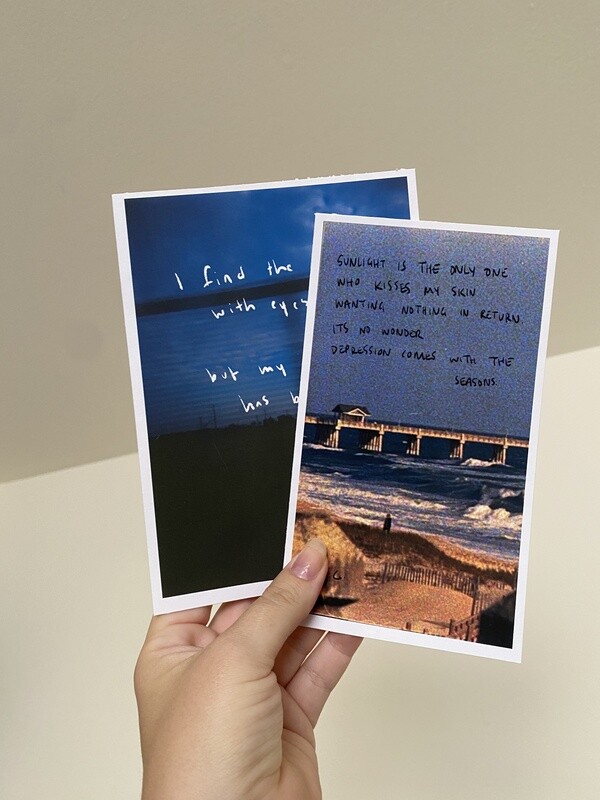 I find the
with eyes
but my
has b
SUNLIGHT IS THE ONLY ONE
WHO KISSES MY SKIN
WANTING NOTHING IN RETURN
ITS NO WONDER
DEPRESSION COMES WITH THE
SEASONS